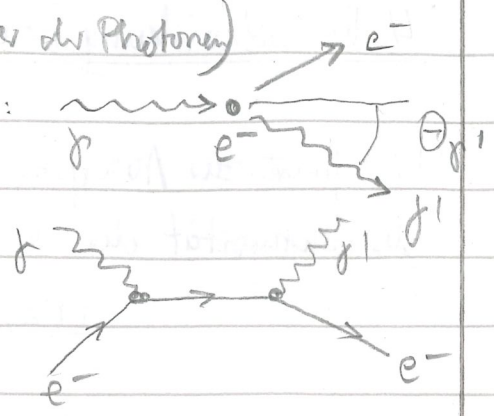 er der Photonen)
e⁻
:
γ e⁻ Θγ'
γ'
γ γ'
e⁻ e⁻